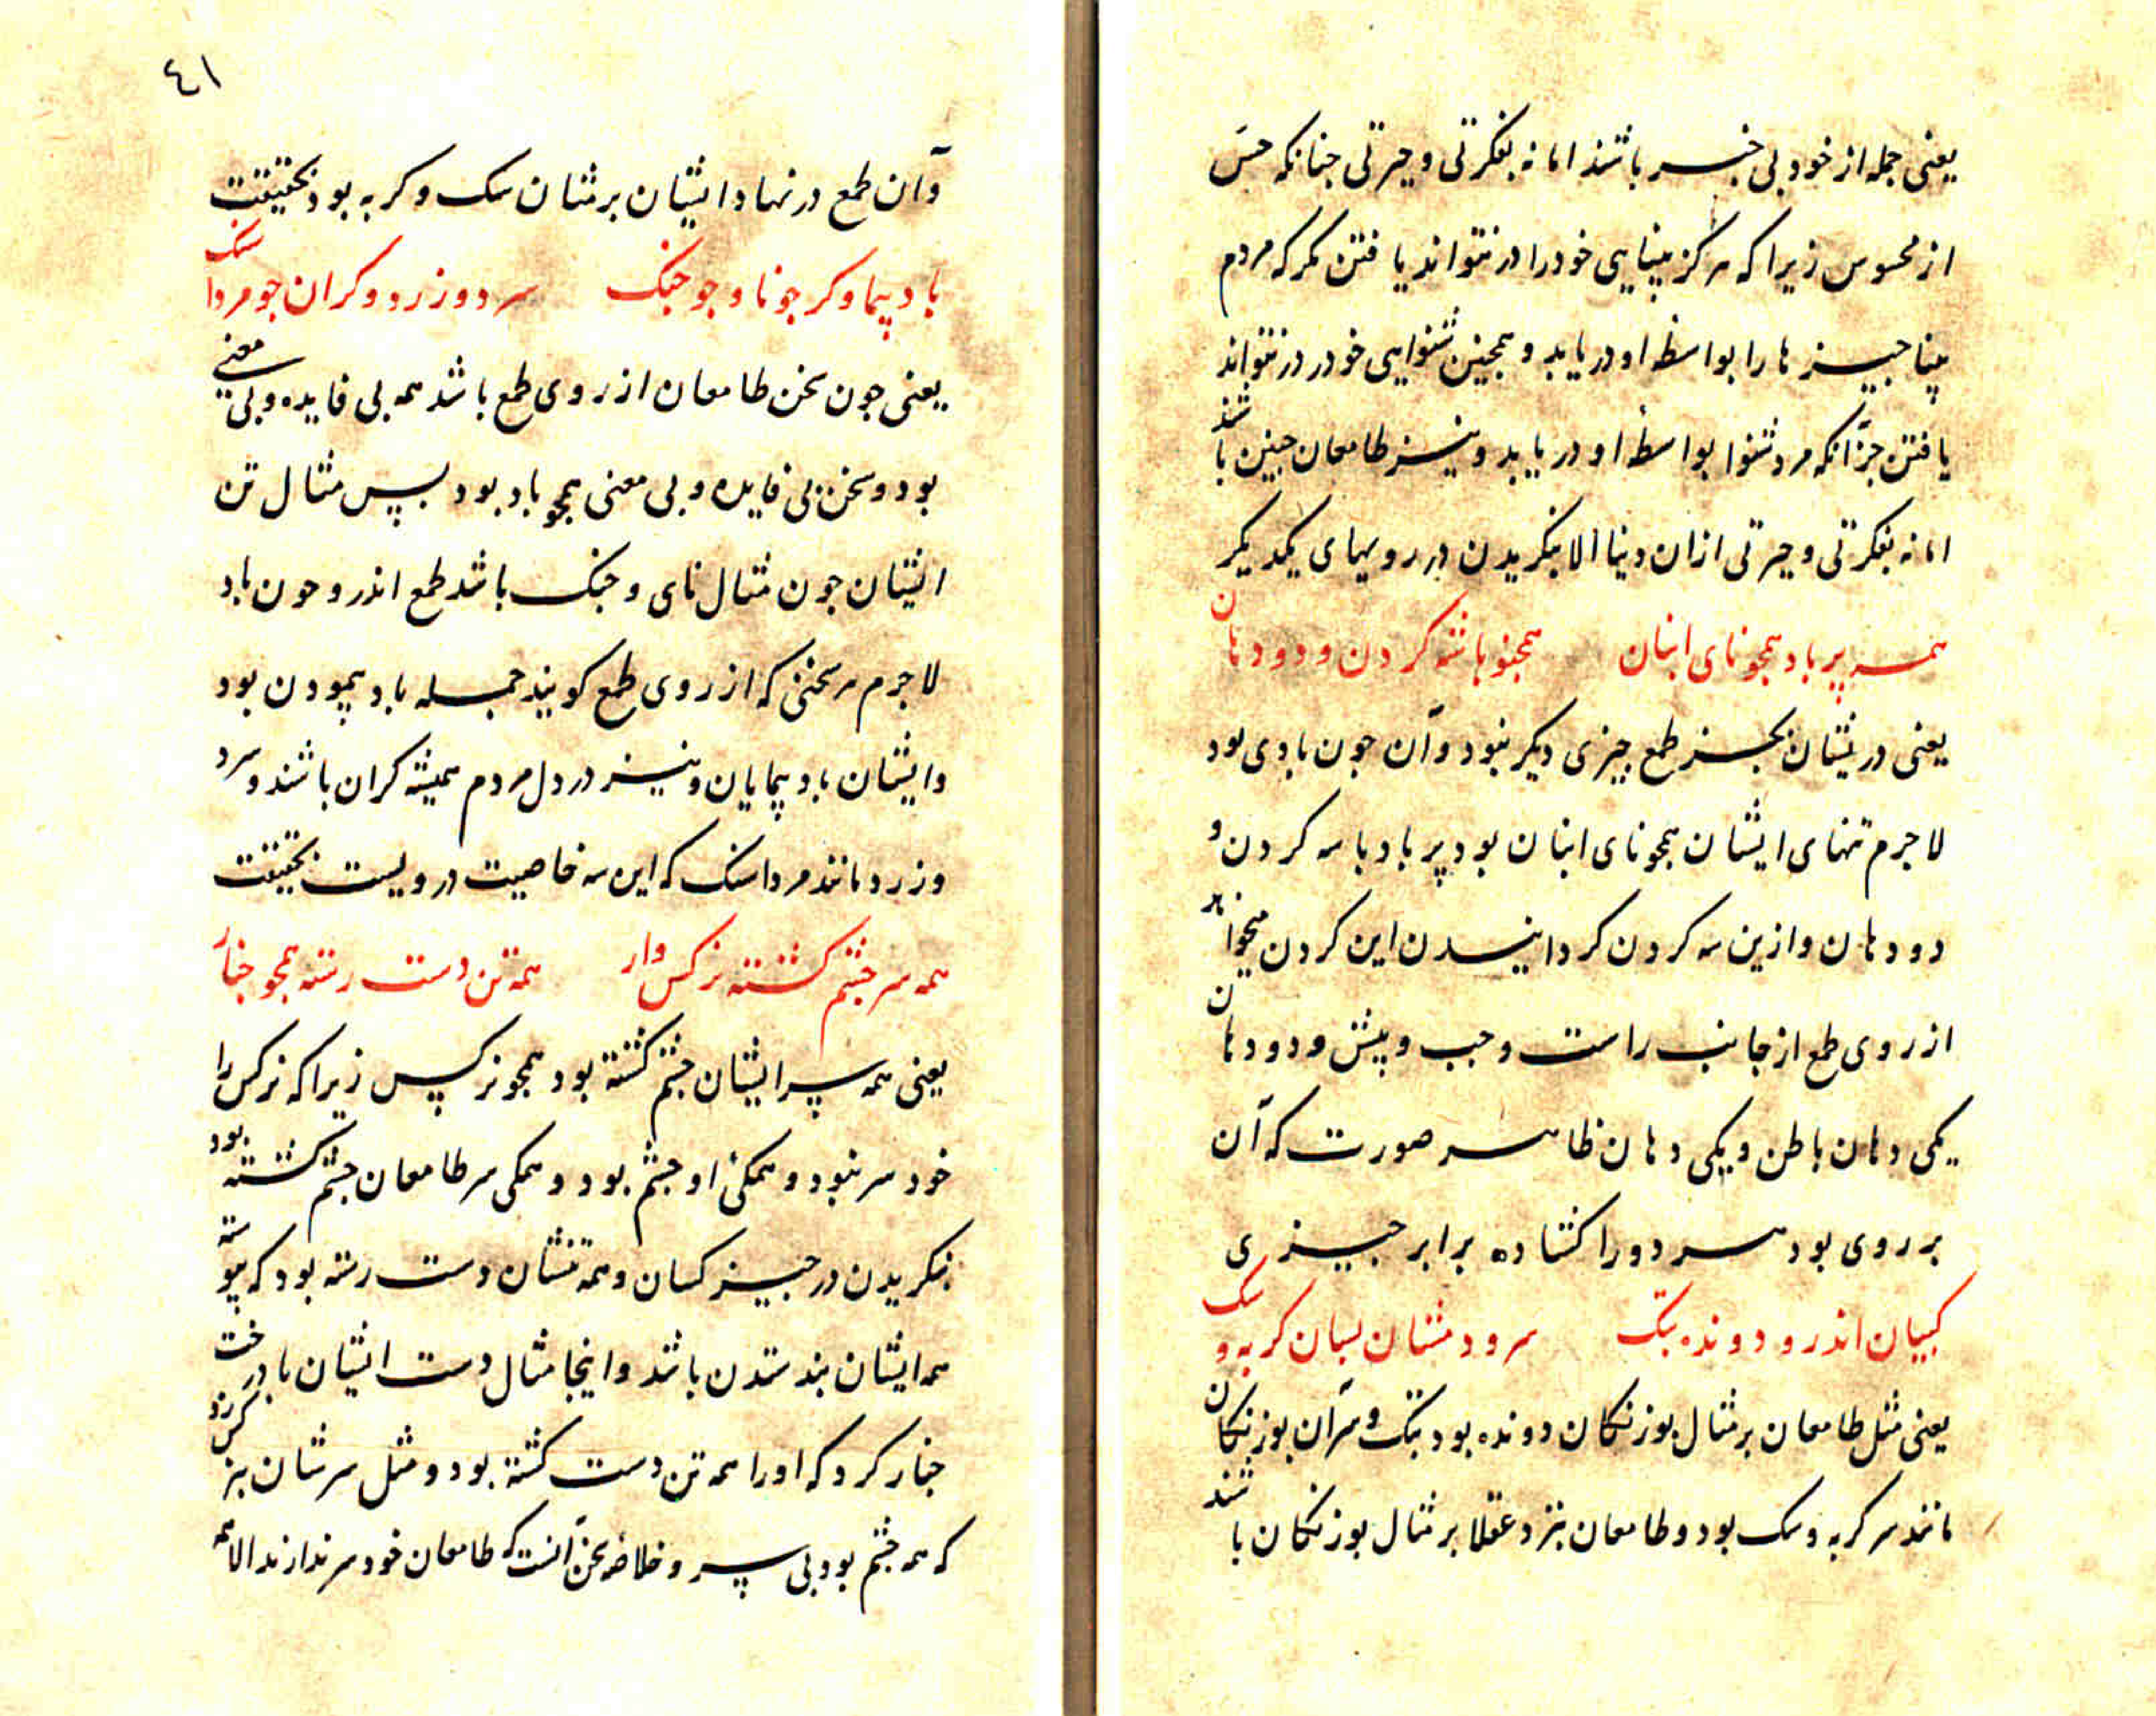 یعنی جمله از خود بی خبر باشند اما نه بفکرتی و حیرتی جنانکه حس
از محسوس زیرا که هرکز بینایی خود را در نتواند یافتن مکر که مردم
بینا جیزها را بواسطه او دریابد و همجنین شنوایی خود در نتواند
یافتن جز آنکه مرد شنوا بواسطه او دریابد و نیز طامعان جنین باشند
اما نه بفکرتی و حیرتی ازان دنیا الا بنکریدن در رویهای یکدیکر
همه پر باد همجو نای انبان همجنو با سه کردن و دو دهان
یعنی دریشان بجز طمع جیزی دیکر نبود وآن جون بادی بود
لاجرم تنهای ایشان همجو نای انبان بود پر باد با سه کردن و
دو دهان وازین سه کردن کردانیدن این کردن میخواهد
از روی طمع از جانب راست و جب و پیش و دو دهان
یکی دهان باطن و یکی دهان ظاهر صورت که آن
بر روی بود هر دو را کشاده برابر جیزی
کبیان اندرو دونده بتک سر و دمشان بسان کربه و سک
یعنی مثل طامعان بر مثال بوزنکان دونده بود بتک و سر آن بوزنکان
مانند سر کربه و سک بود و طامعان بنزد عقلا بر مثال بوزنکان باشند
٤١
وآن طمع در نهاد ایشان بر مثان سک و کربه بود بحقیقت
باد پیما وکر جو نا و جو جنک سرد و زرد و کران جو مرداسنک
یعنی جون سخن طامعان از روی طمع باشد همه بی فایده و بی معنی
بود و سخن بی فایده و بی معنی همجو باد بود پس مثال تن
ایشان جون مثال نای و جنک باشد طمع اندرو جون باد
لاجرم هر سخنی که از روی طمع کویند جمله باد پیمودن بود
وایشان باد پیمایان و نیز در دل مردم همیشه کران باشند و سرد
و زرد مانند مرداسنک که این سه خاصیت درویست بحقیقت
همه سر جشم کشته نرکس وار همه تن دست رسته همجو جنار
یعنی همه سر ایشان جشم کشته بود همجو نرکس زیرا که نرکس را
خود سر نبود و همکی او جشم بود و همکی سر طامعان جشم کشته بود
بنکریدن در جیز کسان و همه تنشان دست رسته بود که پیوسته
همه ایشان بند ستدن باشد و اینجا مثال دست ایشان با درخت
جنار کرد که او را همه تن دست کشته بود و مثل سرشان بنرکس زد
که همه جشم بود بی سر و خلاصه سخن آنست که طامعان خود سر ندارند الا همه